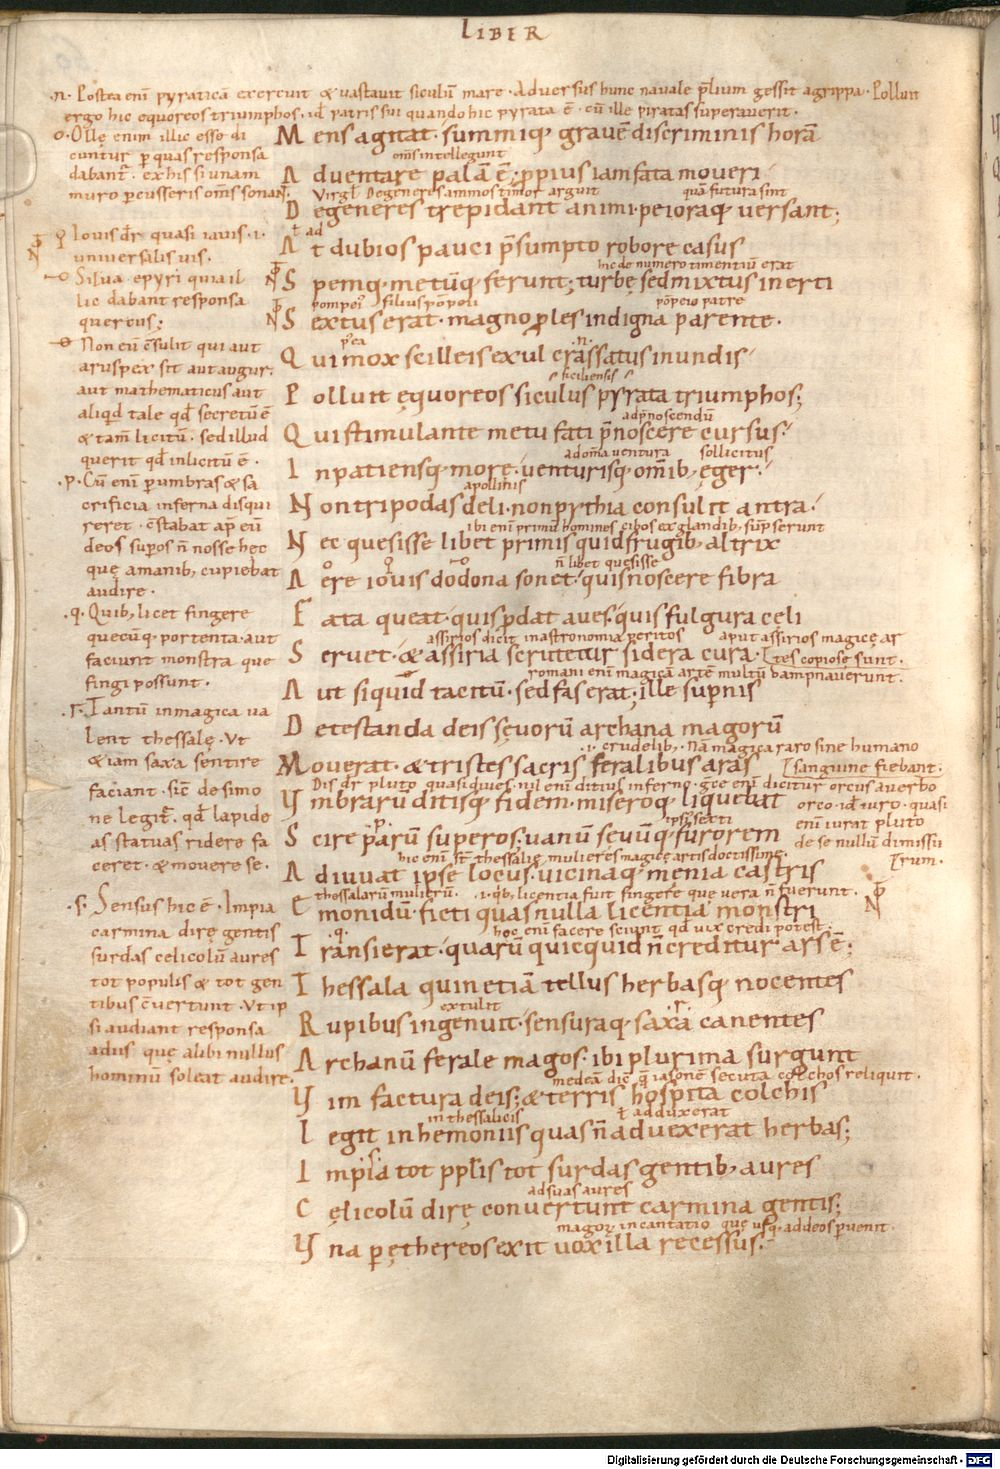 LIBER
.n. Postea enī pyraticā exercuit & vastavit siculū mare. Adversus hunc navale p̄lium gessit agrippa. Polluit
ergo hic equoreos triumphos. id patris sui quando hic pyrata ē. cū ille piratas superaverit.
o. Ollę enim illic esse di
cuntur p quas responsa
dabant̄. ex his si unam
muro pcusseris om̄s sonant.
Iovis dr̄ quasi iavis .i.
universalis vis.
Silva epyri quia il
lic dabant responsa
quercus;
Non cū c̄sulit qui aut
aruspex sit aut augur.
aut mathematicus aut
aliqd tale qd secretū ē
& tam̄ licitū. sed illud
querit qd inlicitū ē.
.p. Cū enī p umbras & sa
crificia inferna disqui
reret. c̄stabat ap̄ eū
deos supos n̄ nosse hec
quę a manib; cupiebat
audire.
.q. Quib; licet fingere
quecūq; portenta. aut
faciunt monstra que
fingi possunt.
.r. Tantū in magica va
lent thessalę. Vt
& iam saxa sentire
faciant. sic̄ de simo
ne legit̄. qd lapide
as statuas ridere fa
ceret. & movere se.
.s. Sensus hic ē. Impia
carmina dirę gentis
surdas celicolū aures
tot populis & tot gen
tibus c̄vertunt. Vt ip
si audiant responsa
adus quę alibi nullus
hominū soleat audire.
Mens agitat. summiq; gravē discriminis horā
om̄s intellegunt
Adventare palā ē; ppius iam fata moveri
Virgl̄. Degeneres animos timor arguit quā futura sint
Degeneres trepidant animi. peioraq; versant;
ł ad
At dubios pauci p̄sumpto robore casus
hic de numero timentiū erat
Spemq; metūq; ferunt; turbę sed mixtus inerti
pompei filius pōpeii pōpeio patre
Sextus erat. magno ples indigna parente.
p̄ ea .n.
Qui mox scilleis exul crassatus in undis
siciliensis
Polluit ęquoreos siculus pyrata triumphos;
ad p̄noscendū
Qui stimulante metu fati p̄noscere cursus.
ad om̄a ventura sollicitus
Inpatiensq; morę. venturisq; om̄ib; ęger.
apollinis
Non tripodas deli. non pythia consulit antra.
ibi enī primū homines cibos ex glandib; sūpserunt
Nec quesisse libet primis quid frugib; altrix
n̄ libet quesisse
Aere iovis dodona sonet. quis noscere fibra
Fata queat. quis pdat aves. quis fulgura celi
assirios dicit in astronomia peritos aput assirios magicę ar
Servet. & assiria scrutetur sidera cura. tes copiose sunt.
romani enī magicā artē multū dampnaverunt.
Aut siquid tacitū. sed fas erat; ille supnis
Detestanda deis sęvorū archana magorū
.i. crudelib;. Nā magica raro sine humano
Moverat. & tristes sacris feralibus aras sanguine fiebant.
Dis dr̄ pluto quasi dives. nil enī ditius inferno. gr̄ce enī dicitur orcus a verbo
Vmbrarū ditisq; fidem. miseroq; liquebat orco. id iuro. quasi
ipsi sexti enī iurat pluto
Scire parū superos; vanū sevūq; furorem de se nullū dimissu
hic enī st̄ thessalię mulieres magicę artis doctissimę. rum.
Adiuvat ipse locus. vicinaq; menia castris
thessalarū mulierū. .i. qb; licentia fuit fingere que vera n̄ fuerunt.
Emonidū. ficti quas nulla licentia monstri
.q. hoc enī facere sciunt qd vix credi potest.
Transierat. quarū quicquid n̄ creditur ars ē;
Thessala quin etiā tellus herbasq; nocentes
extulit .r.
Rupibus ingenuit. sensuraq; saxa canentes
Archanū ferale magos. ibi plurima surgunt
medeā dic̄. q̄ iasonē secuta colchos reliquit.
Vim factura deis; & terris hospita colchis
in thessalicis ł adduxerat
Legit in hemoniis quas n̄ advexerat herbas;
.s.
Impia tot pplis tot surdas gentib; aures
ad suas aures
Cęlicolū dirę convertunt carmina gentis;
magorū incantatio quę usq; ad deos pvenit.
Vna p ęthereos exit vox illa recessus.
Digitalisierung gefördert durch die Deutsche Forschungsgemeinschaft - DFG